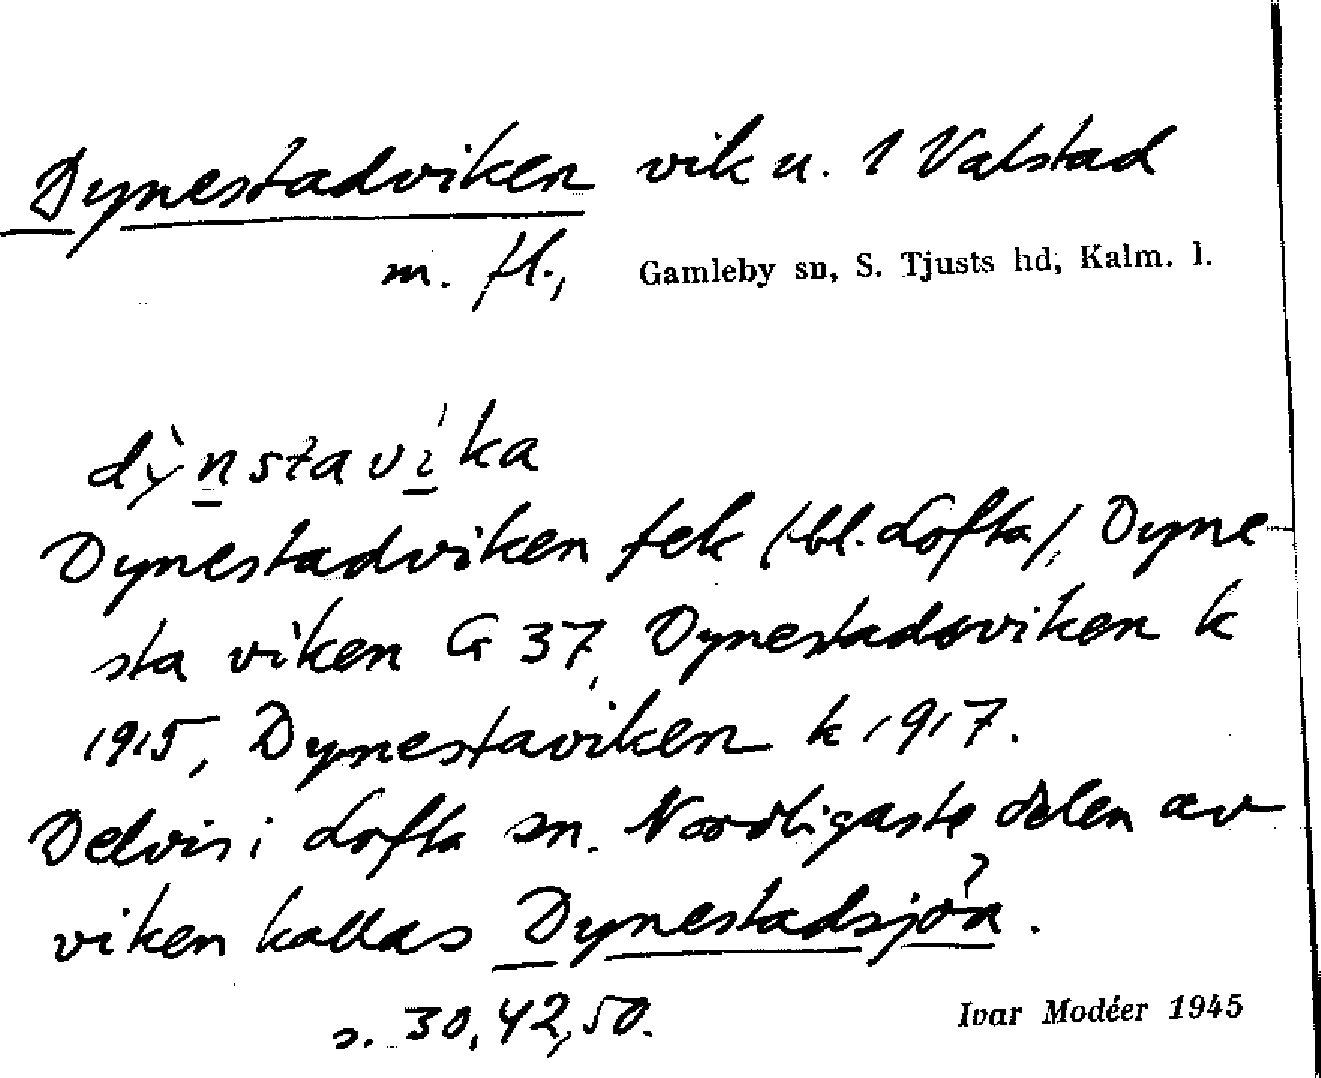 Dynestadviken vik u. 1 Valstad
m. fl., Gamleby sn, S. Tjusts hd, Kalm. l.
dỳnstavíka
Dynestadviken fek (bl. Lofta), Dyne-
sta viken G 37, Dynestadsviken k
1915, Dynestaviken k 1917.
Delvis i Lofta sn. Nordligaste delen av
viken kallas Dynestadsjön.
s. 30, 42, 50.
Ivar Modéer 1945